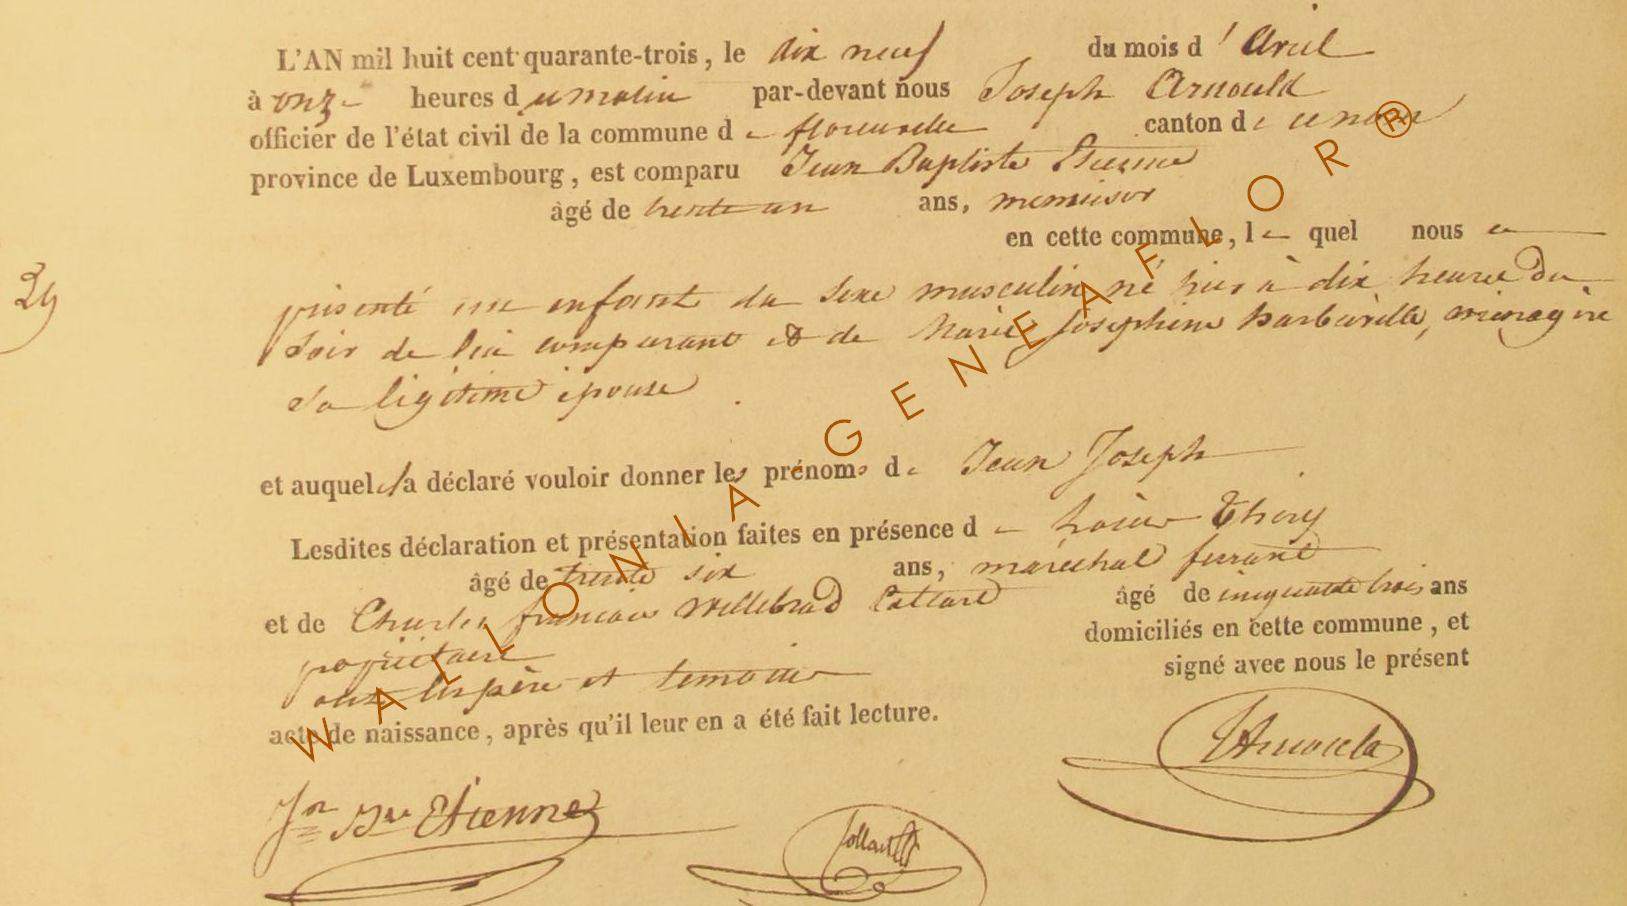 L'AN mil huit cent quarante-trois, le dix neuf du mois d'avril
à onze heures du matin par-devant nous Joseph Arnould
officier de l'état civil de la commune de florenville canton de
province de Luxembourg, est comparu Jean Baptiste Etienne
âgé de trente un ans, menuisier
en cette commune, le quel nous a
39
présenté un enfant du sexe masculin né hier à dix heures du
soir de lui comparant et de Marie Josephine, ménagère
sa légitime épouse
et auquel il a déclaré vouloir donner les prénoms de Jean Joseph
Lesdites déclaration et présentation faites en présence de Thiry
âgé de trente six ans, maréchal ferrant
et de Charles françois Willebrod Collard âgé de cinquante trois ans
propriétaire domiciliés en cette commune, et
ont les père et temoins signé avec nous le présent
acte de naissance, après qu'il leur en a été fait lecture.
JArnould
Jn Bte Etienne
Collard
WALLONIA-GENEAFLOR®